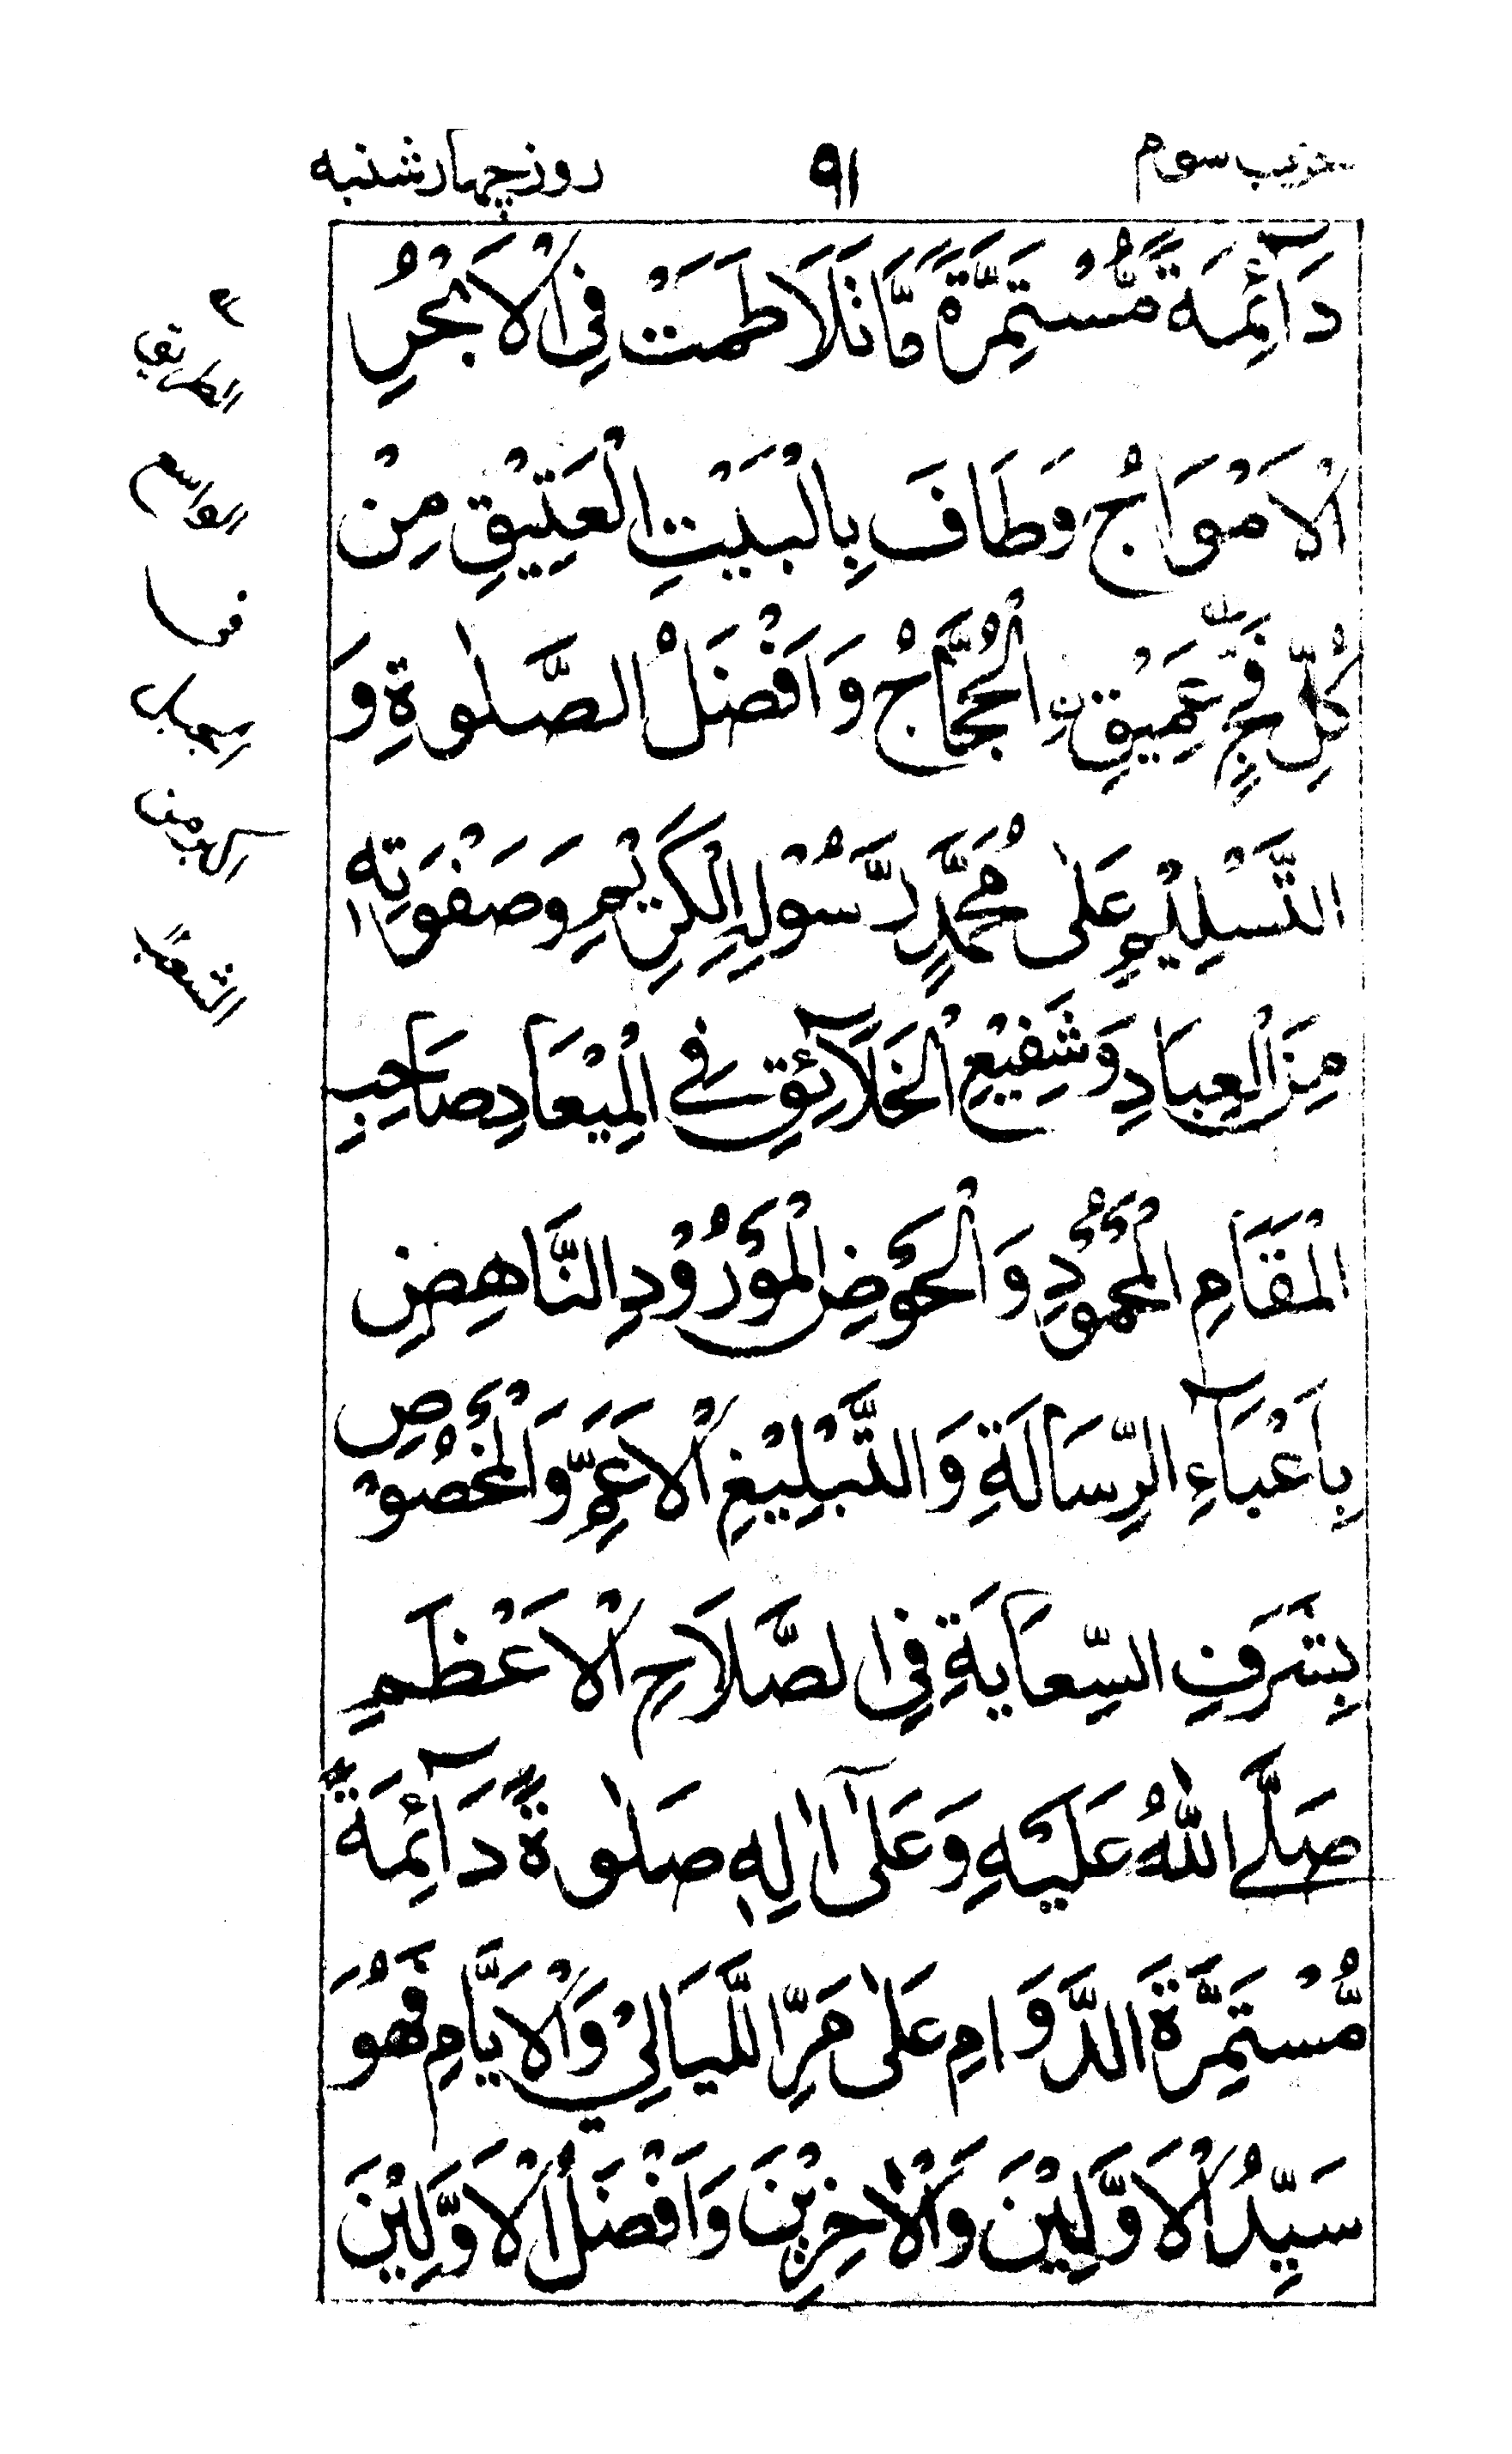 حزب سوم ٩١ روز چہار شنبہ
دَآئِمَةً مُّسْتَمِرَّةً مَّا تَلَاطَمَتْ فِی الْاَبْحُرِ
الْاَمْوَاجُ وَطَافَ بِالْبَیْتِ الْعَتِیْقِ مِنْ
کُلِّ فَجٍّ عَمِیْقِ ۣالْحُجَّاجُ وَاَفْضَلُ الصَّلٰوةِ وَ
التَّسْلِیْمِ عَلٰی مُحَمَّدٍ رَّسُوْلِهِ الْکَرِیْمِ وَصَفْوَتِهٖ
مِنَ الْعِبَادِ وَشَفِیْعِ الْخَلَآئِقِ فِے الْمِیْعَادِ صَاحِبِ
الْمَقَامِ الْمَحْمُوْدِ وَالْحَوْضِ الْمَوْرُوْدِ النَّاهِضِ
بِاَعْبَآءِ الرِّسَالَةِ وَالتَّبْلِیْغِ الْاَعَمِّ وَالْمَخْصُوْصِ
بِشَرَفِ السِّعَایَةِ فِی الصَّلَاحِ الْاَعْظَمِ
صَلَّے اللّٰهُ عَلَیْهِ وَعَلٰٓی اٰلِهٖ صَلٰوةً دَآئِمَةً
مُّسْتَمِرَّةَ الدَّوَامِ عَلٰی مَرِّ اللَّیَالِیْ وَالْاَیَّامِ فَهُوَ
سَیِّدُ الْاَوَّلِیْنَ وَالْاٰخِرِیْنَ وَاَفْضَلُ الْاَوَّلِیْنَ
الطریق
الواسع
الشعب